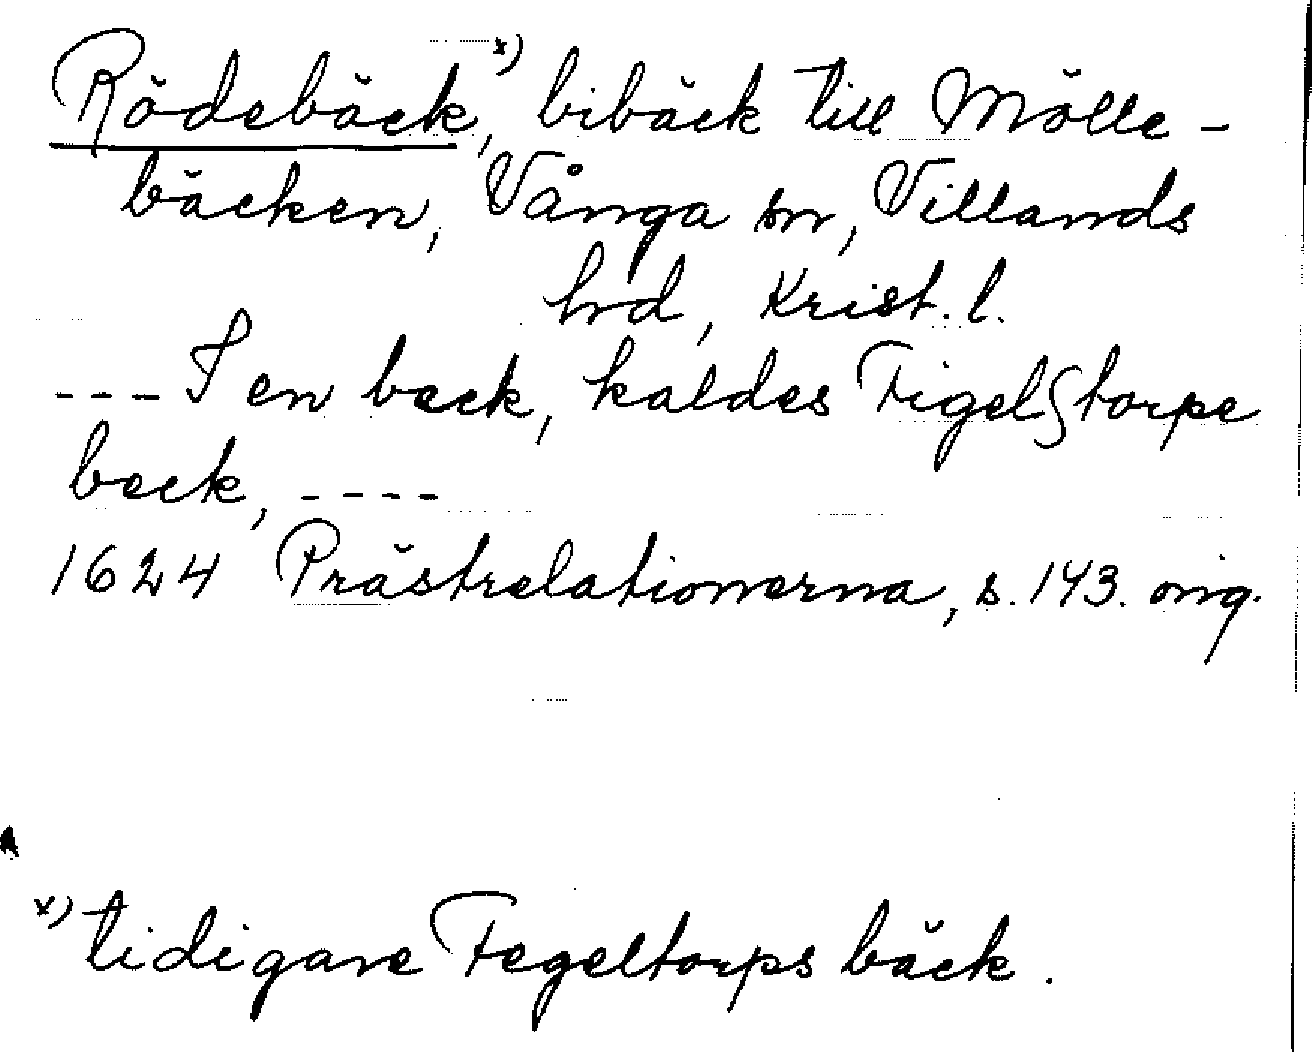 Rödebäck,x) bibäck till Mölle-
bäcken, Vånga sn, Villands
hrd, Krist. l.
--- I en beck, kaldes Figelstorpe
beck, ----
1624 Prästrelationerna, s. 143. orig.
x) tidigare Fegeltorps bäck.